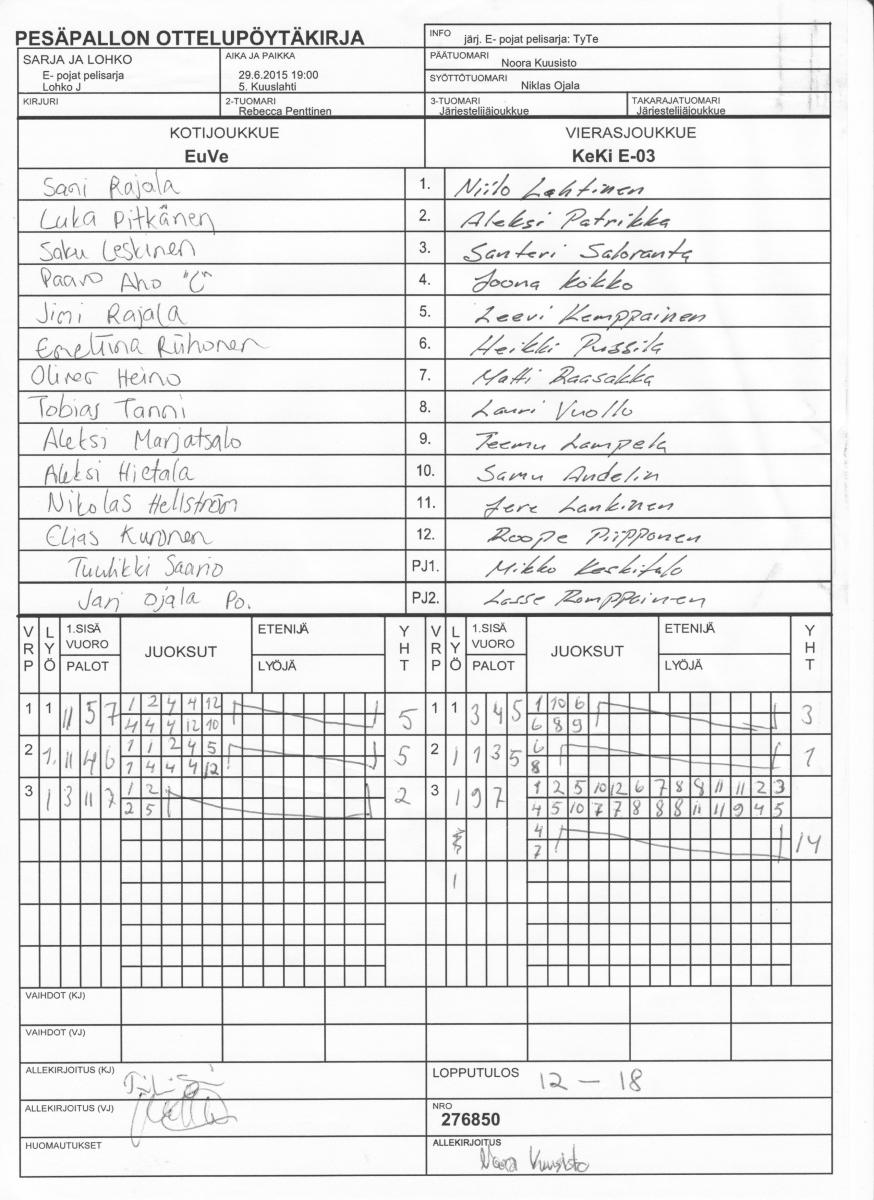 PESÄPALLON OTTELUPÖYTÄKIRJA
INFO järj. E- pojat pelisarja: TyTe
SARJA JA LOHKO
E- pojat pelisarja
Lohko J
AIKA JA PAIKKA
29.6.2015 19:00
5. Kuuslahti
PÄÄTUOMARI Noora Kuusisto
SYÖTTÖTUOMARI Niklas Ojala
KIRJURI
2-TUOMARI
Rebecca Penttinen
3-TUOMARI
Järjestelijäjoukkue
TAKARAJATUOMARI
Järjestelijäjoukkue
KOTIJOUKKUE VIERASJOUKKUE
EuVe KeKi E-03
Sani Rajala 1. Niilo Lahtinen
Luka Pitkänen 2. Aleksi Patrikka
Saku Leskinen 3. Santeri Saloranta
Paavo Aho "C" 4. Joona Kokko
Jimi Rajala 5. Leevi Kemppainen
Emeltina Riihonen 6. Heikki Pussila
Oliver Heino 7. Matti Raasakka
Tobias Tanni 8. Lauri Vuollo
Aleksi Marjatsalo 9. Teemu Lampela
Aleksi Hietala 10. Samu Andelin
Nikolas Hellström 11. Jere Lankinen
Elias Kuronen 12. Roope Piipponen
Tuulikki Saario PJ1. Mikko Keskitalo
Jari Ojala Po. PJ2. Lasse Romppainen
VRP LYÖ 1.SISÄ VUORO PALOT JUOKSUT ETENIJÄ LYÖJÄ YHT VRP LYÖ 1.SISÄ VUORO PALOT JUOKSUT ETENIJÄ LYÖJÄ YHT
1 1 11 5 7 1 2 4 4 12 5 1 1 3 4 5 1 10 6 3
4 4 4 12 10 6 8 9
2 1. 11 4 6 1 1 2 4 5 5 2 1 1 3 5 6 1
1 4 4 4 12 8
3 1 3 11 7 1 2 2 3 1 9 7 1 2 5 10 12 6 7 8 8 11 11 2 3
2 5 4 5 10 7 7 8 8 8 11 11 9 4 5
4 14
7
1
VAIHDOT (KJ)
VAIHDOT (VJ)
ALLEKIRJOITUS (KJ)
LOPPUTULOS 12 – 18
ALLEKIRJOITUS (VJ)
NRO
276850
HUOMAUTUKSET
ALLEKIRJOITUS
Noora Kuusisto